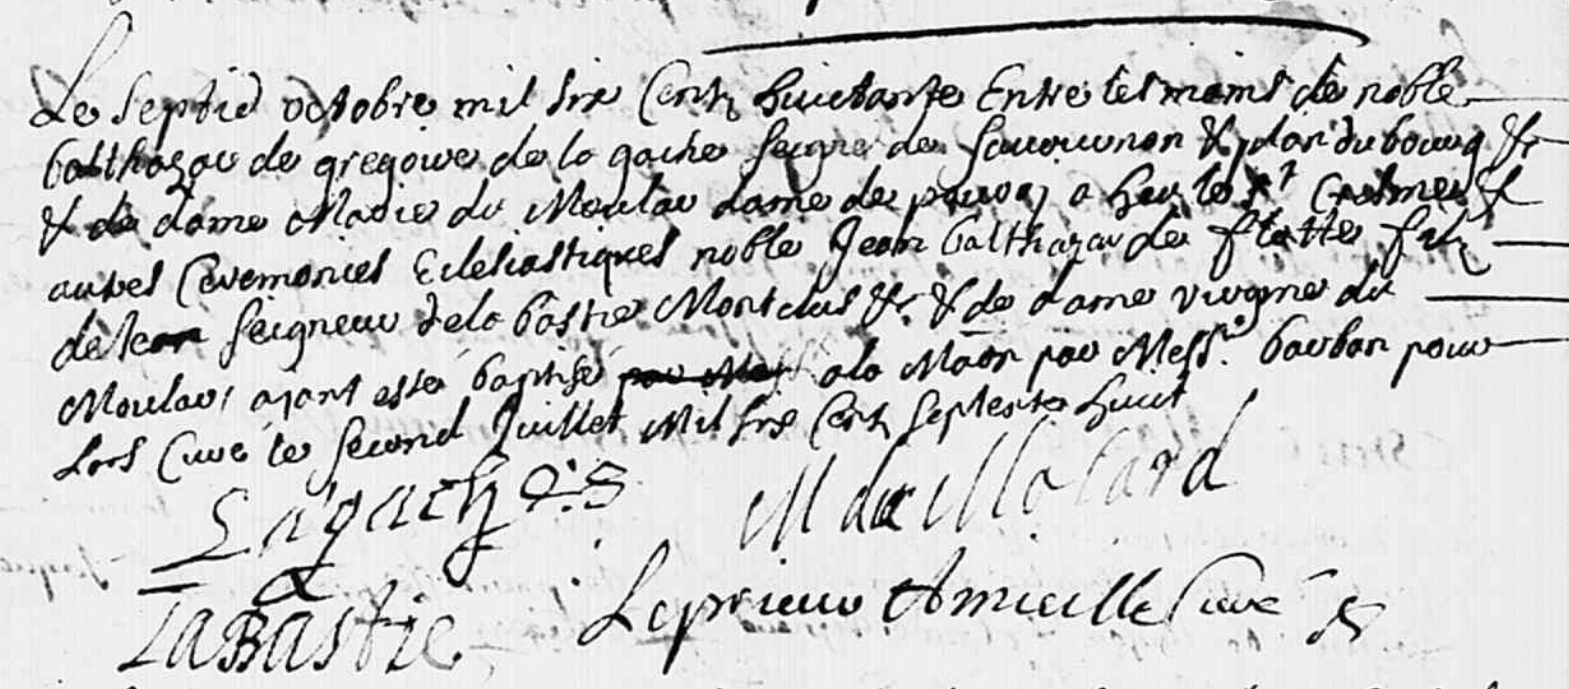 Le septie octobre mil six cents huictante Entre les mains de noble
balthazar de gregoire de la gache seigr de savournon & plan du bourg &c
& de dame Marie du Moular dame de a heu le st Cresme &
autres Ceremonies Eclesiastiques noble Jean balthazar de flotte filz
de Jean seigneur de la bastie Montclus &c & de dame virginie du
Moular, ajant esté baptisé par Mess a la Maon par Messr. barban pour
Lors Curé le second Juillet Mil six Cent septente huict
Lagache
M du Molard
LaBastie
Le prieur Amieille Curé